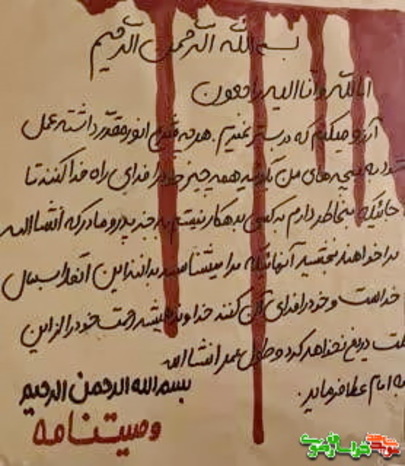 بسم الله الرحمن الرحیم
انا لله و انا الیه راجعون
آرزو میکنم که در بستر نمیرم. هر چه خدا
شود به بچه های من بگوئید همه چیز خود را فدای راه خدا کنند تا
جائیکه بخاطر دارم به کسی بدهکار نیستم به جز پدر و مادرکه انشاالله
مرا خواهند بخشید آنهائیکه مرا میشناسند بدانند این انقلاب مال
خداست و خود را فدای آن کنند خداوند همیشه رحمت خود را از این
ملت دریغ نخواهد کرد و طول عمر انشاالله
به امام عطا فرماید.
بسم الله الرحمن الرحیم
وصیت نامه